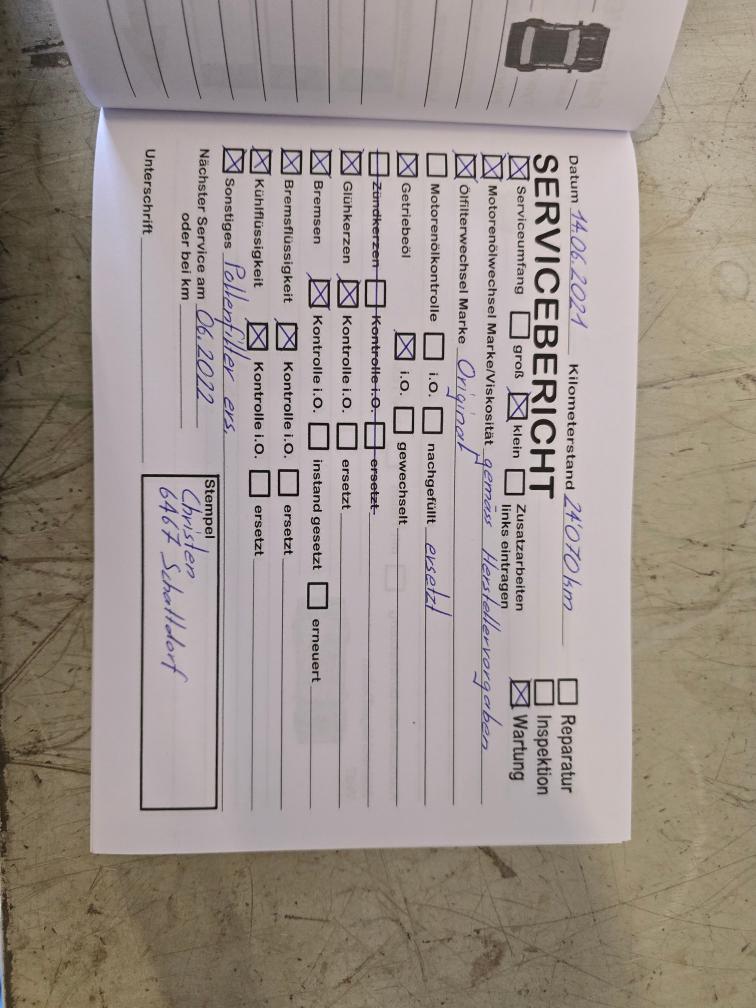 Datum 14.06.2021 Kilometerstand 24'070 km
SERVICEBERICHT
Reparatur
Inspektion
Wartung
Serviceumfang groß klein Zusatzarbeiten
links eintragen
Motorenölwechsel Marke/Viskosität gemäss Herstellervorgaben
Ölfilterwechsel Marke Original
Motorenölkontrolle i.O. nachgefüllt ersetzt
Getriebeöl i.O. gewechselt
Zündkerzen Kontrolle i.O. ersetzt
Glühkerzen Kontrolle i.O. ersetzt
Bremsen Kontrolle i.O. instand gesetzt erneuert
Bremsflüssigkeit Kontrolle i.O. ersetzt
Kühlflüssigkeit Kontrolle i.O. ersetzt
Sonstiges Pollenfilter ers.
Nächster Service am 06.2022
oder bei km
Unterschrift
Stempel
Christen
6467 Schattdorf